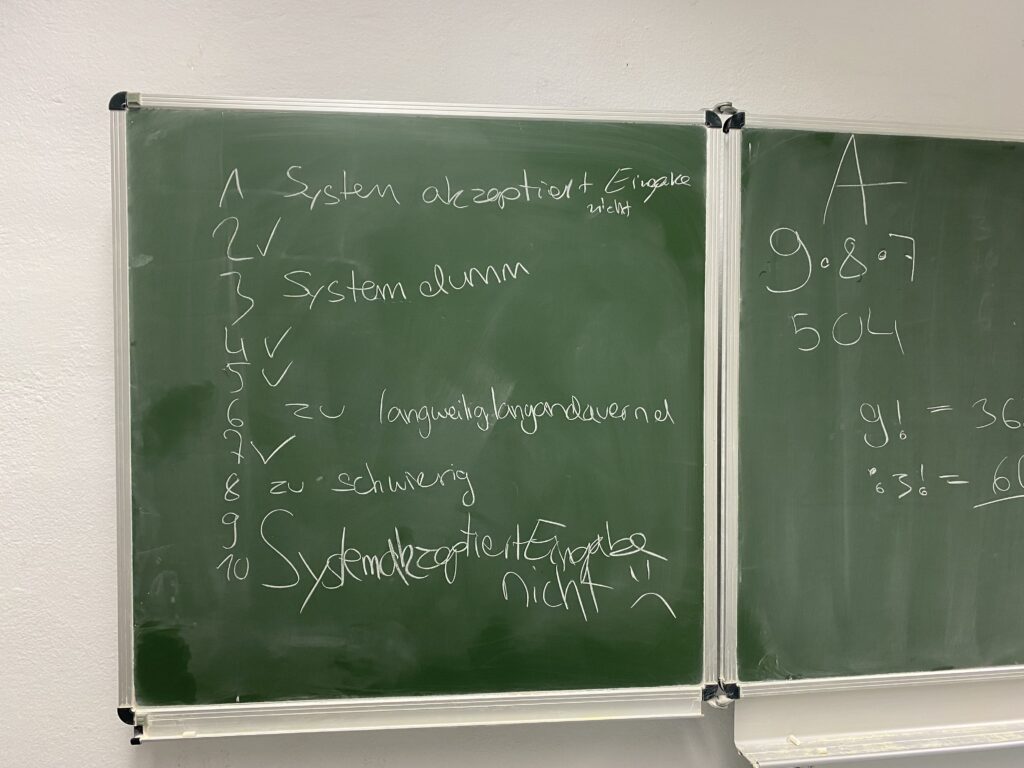 1 System akzeptiert Eingabe
nicht
2 ✓
3 System dumm
4 ✓
5 ✓
6 zu langweilig langandauernd
7 ✓
8 zu schwierig
9
10 System akzeptiert Eingabe
nicht :(
A
9·8·7
504
9! = 36
:3! = 60